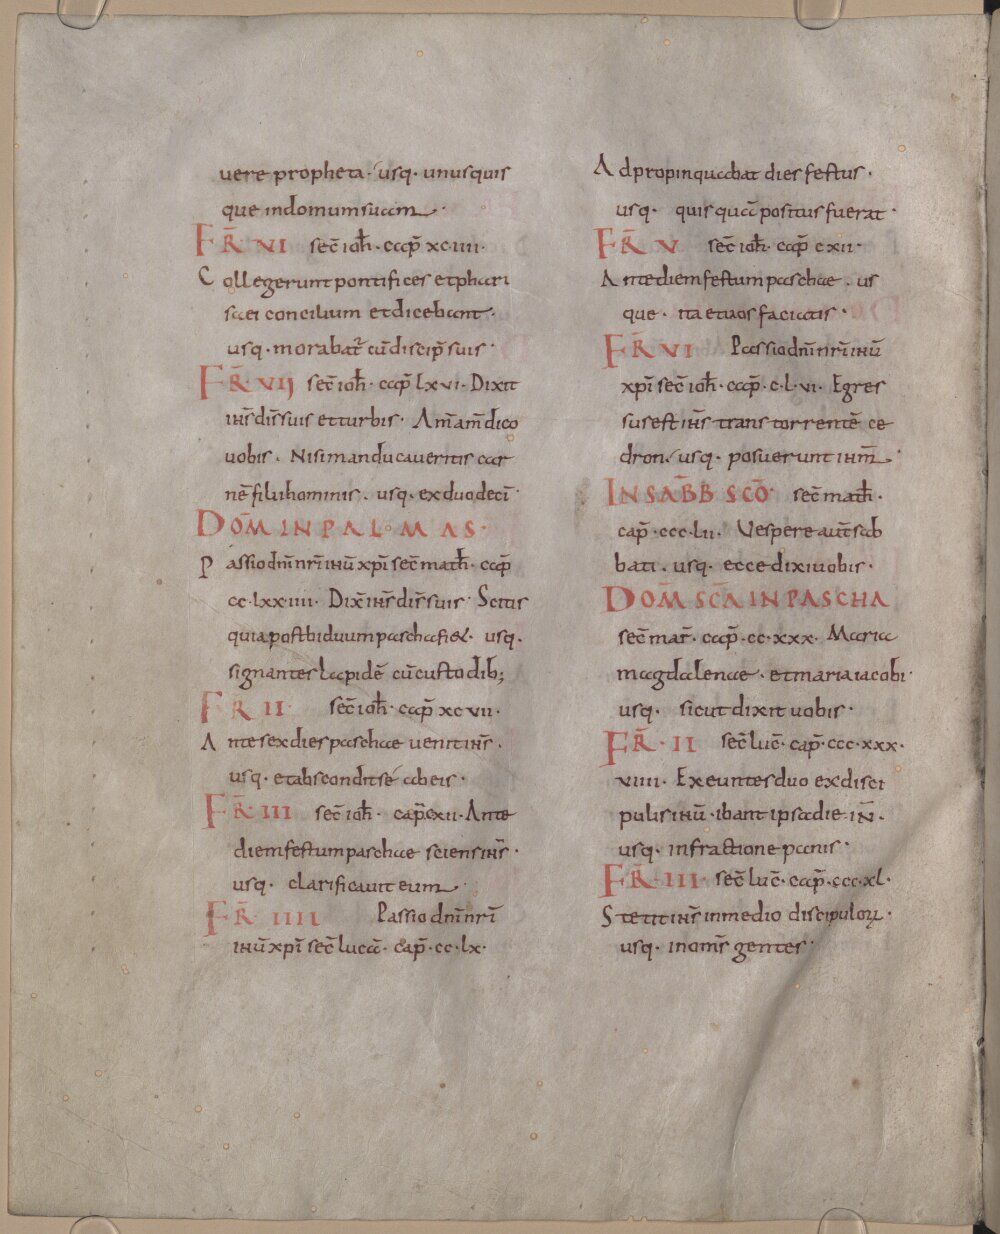 vere propheta· usq· unusquis
que in domum suam·
FR̄ VI secͫ ioh̄· cap̄ xciiii·
Collegerunt pontifices et phari
saei concilium et dicebant·
usq· morabat̄ cū discip̄ suis·
FR̄ VII secͫ ioh̄· cap̄ lxvi· Dixit
ih̄s dis̄ suis et turbis· Am̄ am̄ dico
vobis· Nisi manducaveritis car
nē filii hominis· usq· ex duodecī
DOM̄ IN PALMAS·
Passio dn̄i nr̄i ihū xp̄i sec̄ math̄· cap̄
cclxxiiii· Dix̄ ih̄s dis̄ suis· Scitis
quia post biduum pascha fiet· usq·
signantes lapidē cū custodib;
FR̄ II sec̄ ioh̄· cap̄ xcvii·
Ante sex dies paschae venit ih̄s·
usq· et abscondit sé ab eis·
FR̄ III sec̄ ioh̄· cap̄ cxii· Ante
diem festum paschae sciens ih̄s·
usq· clarificavit eum·
FR̄ IIII Passio dn̄i nr̄i
ihū xp̄i sec̄ lucā· cap̄· cc·lx·
Adpropinquabat dies festus·
usq· quis quā positus fuerat·
FR̄ V sec̄ ioh̄· cap̄ cxii·
Ante diem festum paschae· us
que· ita et vos faciatis·
FR̄ VI Passio dn̄i nr̄i ihū
xp̄i sec̄ ioh̄· cap̄· c·l·vi· Egres
sus est ih̄s trans torrentē ce
dron· usq· posuerunt ihm̄·
IN SABB̄ SCŌ sec̄ math̄·
cap̄ ·ccc·lii· Vespere aut̄ sab
bati· usq· ecce dixi vobis·
DOM̄ SCĀ IN PASCHA
sec̄ mar̄· cap̄· cc·xxx· Maria
magdalenae· et maria iacobi·
usq· sicut dixit vobis·
FR̄· II sec̄ luc̄· cap̄· ccc·xxx·
viiii· Exeuntes duo ex disci
pulis ihū· ibant ipsa die· IN̄·
usq· in fractione panis·
FR̄· III· sec̄ luc̄· cap̄· ccc·xl·
Stetit ih̄s in medio discipuloꝝ·
usq· in om̄s gentes·